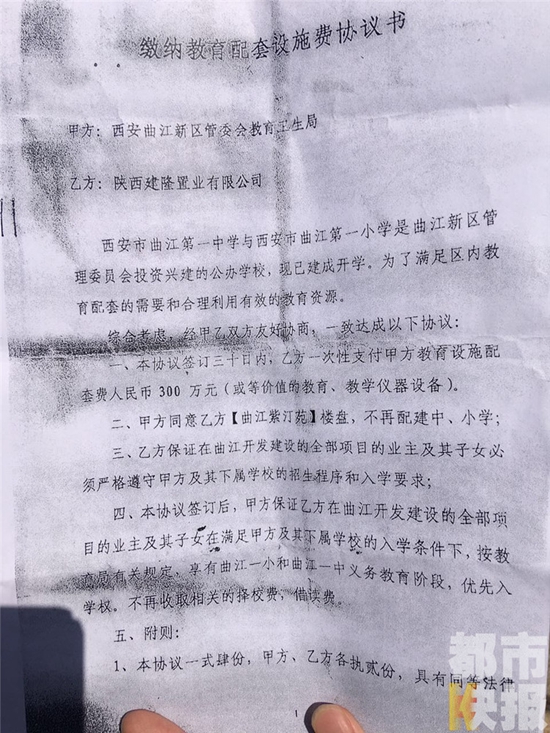 缴纳教育配套设施费协议书
甲方：西安曲江新区管委会教育卫生局
乙方：陕西建隆置业有限公司
西安市曲江第一中学与西安市曲江第一小学是曲江新区管
理委员会投资兴建的公办学校，现已建成开学。为了满足区内教
育配套的需要和合理利用有效的教育资源。
综合考虑，经甲乙双方友好协商，一致达成以下协议：
一、本协议签订三十日内，乙方一次性支付甲方教育设施配
套费人民币 300 万元（或等价值的教育、教学仪器设备）。
二、甲方同意乙方【曲江紫汀苑】楼盘，不再配建中、小学；
三、乙方保证在曲江开发建设的全部项目的业主及其子女必
须严格遵守甲方及其下属学校的招生程序和入学要求；
四、本协议签订后，甲方保证乙方在曲江开发建设的全部项
目的业主及其子女在满足甲方及其下属学校的入学条件下，按教
育局有关规定、享有曲江一小和曲江一中义务教育阶段，优先入
学权。不再收取相关的择校费，借读费。
五、附则：
1、本协议一式肆份，甲方、乙方各执贰份，具有同等法律
1
都市
快报